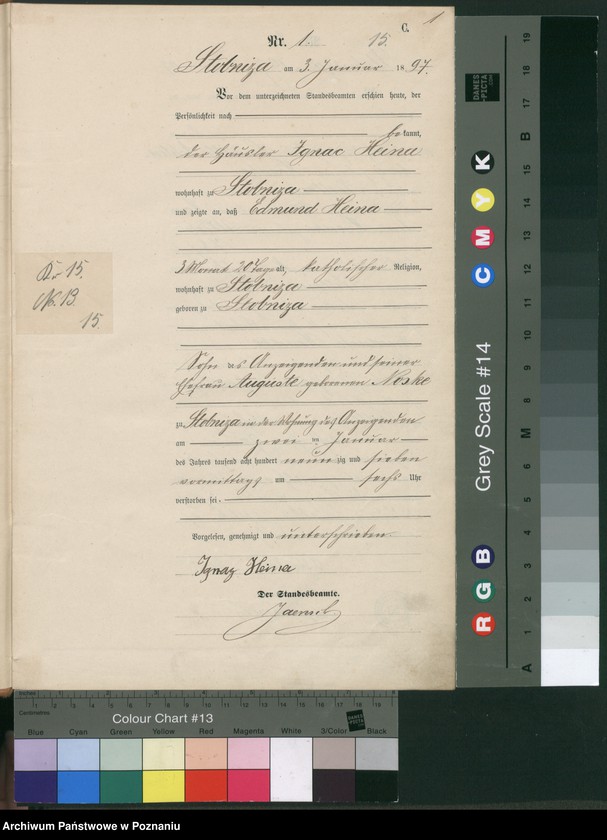 C. 1
Nr. 1. 15.
Stobniza am 3. Januar 1897.
Vor dem unterzeichneten Standesbeamten erschien heute, der
Persönlichkeit nach
bekannt,
der Häusler Ignac Heina
wohnhaft zu Stobniza
und zeigte an, daß Edmund Heina
3 Monat 20 Tage alt, katholischer Religion,
wohnhaft zu Stobniza
geboren zu Stobniza
Sohn des Anzeigenden und seiner
Ehefrau Auguste geborenen Noske
zu Stobniza in der Wohnung des Anzeigenden
am zwei ten Januar
des Jahres tausend acht hundert neunzig und sieben
vormittags um sechs Uhr
verstorben sei.
Vorgelesen, genehmigt und unterschrieben
Ignaz Heina
Der Standesbeamte.
Jaensch
15.
No. 13
15.
DANES
-PICTA
.COM
Grey Scale #14
A 1 2 3 4 5 6 M 8 9 10 11 12 13 14 15 B 17 18 19
R G B C M Y K
Inches 1 2 3 4 5 6 7
Centimetres 1 2 3 4 5 6 7 8 9 10 11 12 13 14 15 16 17 18 19
Colour Chart #13
Blue Cyan Green Yellow Red Magenta White 3/Color Black
Archiwum Państwowe w Poznaniu